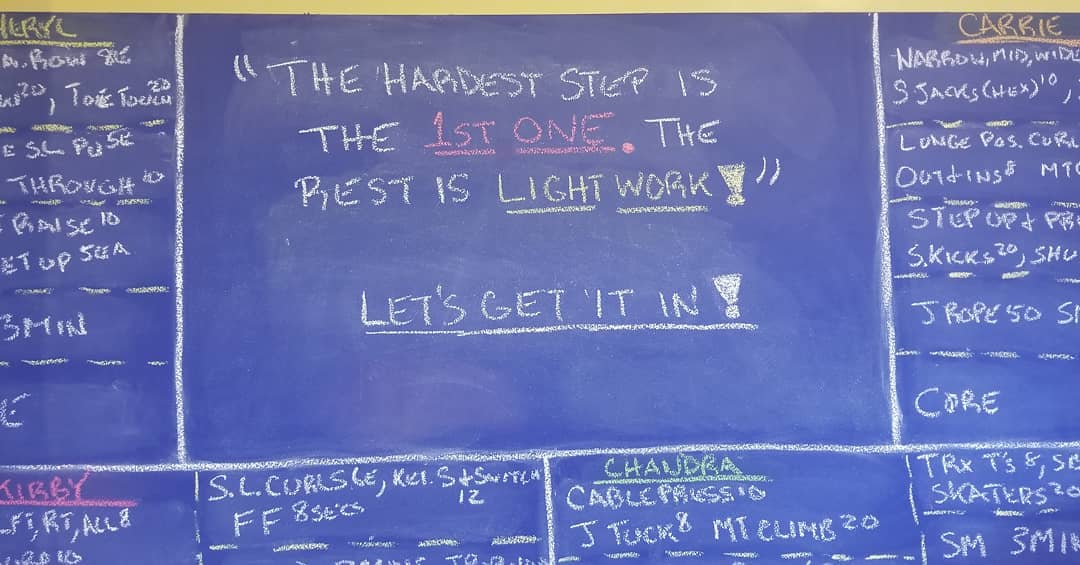 A. ROW
20, TOE TOUCH 20
THROUGH 10
RAISE 10
ET UP 5EA
3 MIN
E
"THE HARDEST STEP IS
THE 1ST ONE. THE
REST IS LIGHT WORK!"
LET'S GET IT IN!
CARRIE
NARROW, MID, WIDE
S JACKS (HEX) 10,
LUNGE POS. CURL
OUT + INS 8 MTC
STEP UP +
S. KICKS 20, SHU
J ROPE 50
CORE
KIRBY
RT, ALL 8
S.L. CURLS 6E,
12
FF 8SECS
CHANDRA
CABLE PRESS 10
J TUCK 8 MT CLIMB 20
TRX T'S 8,
SKATERS 20
SM 3MIN